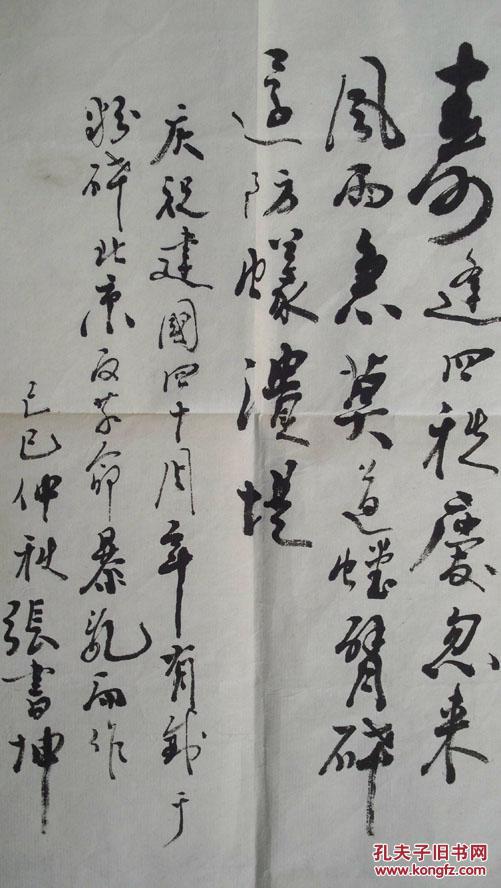 壽逢四秩慶忽来
風雨急莫道螳臂碎
還防蟻潰堤
庆祝建國四十周年有于
粉碎北京反革命暴乱而作
己巳仲秋張書坤
孔夫子旧书网
www.kongfz.com